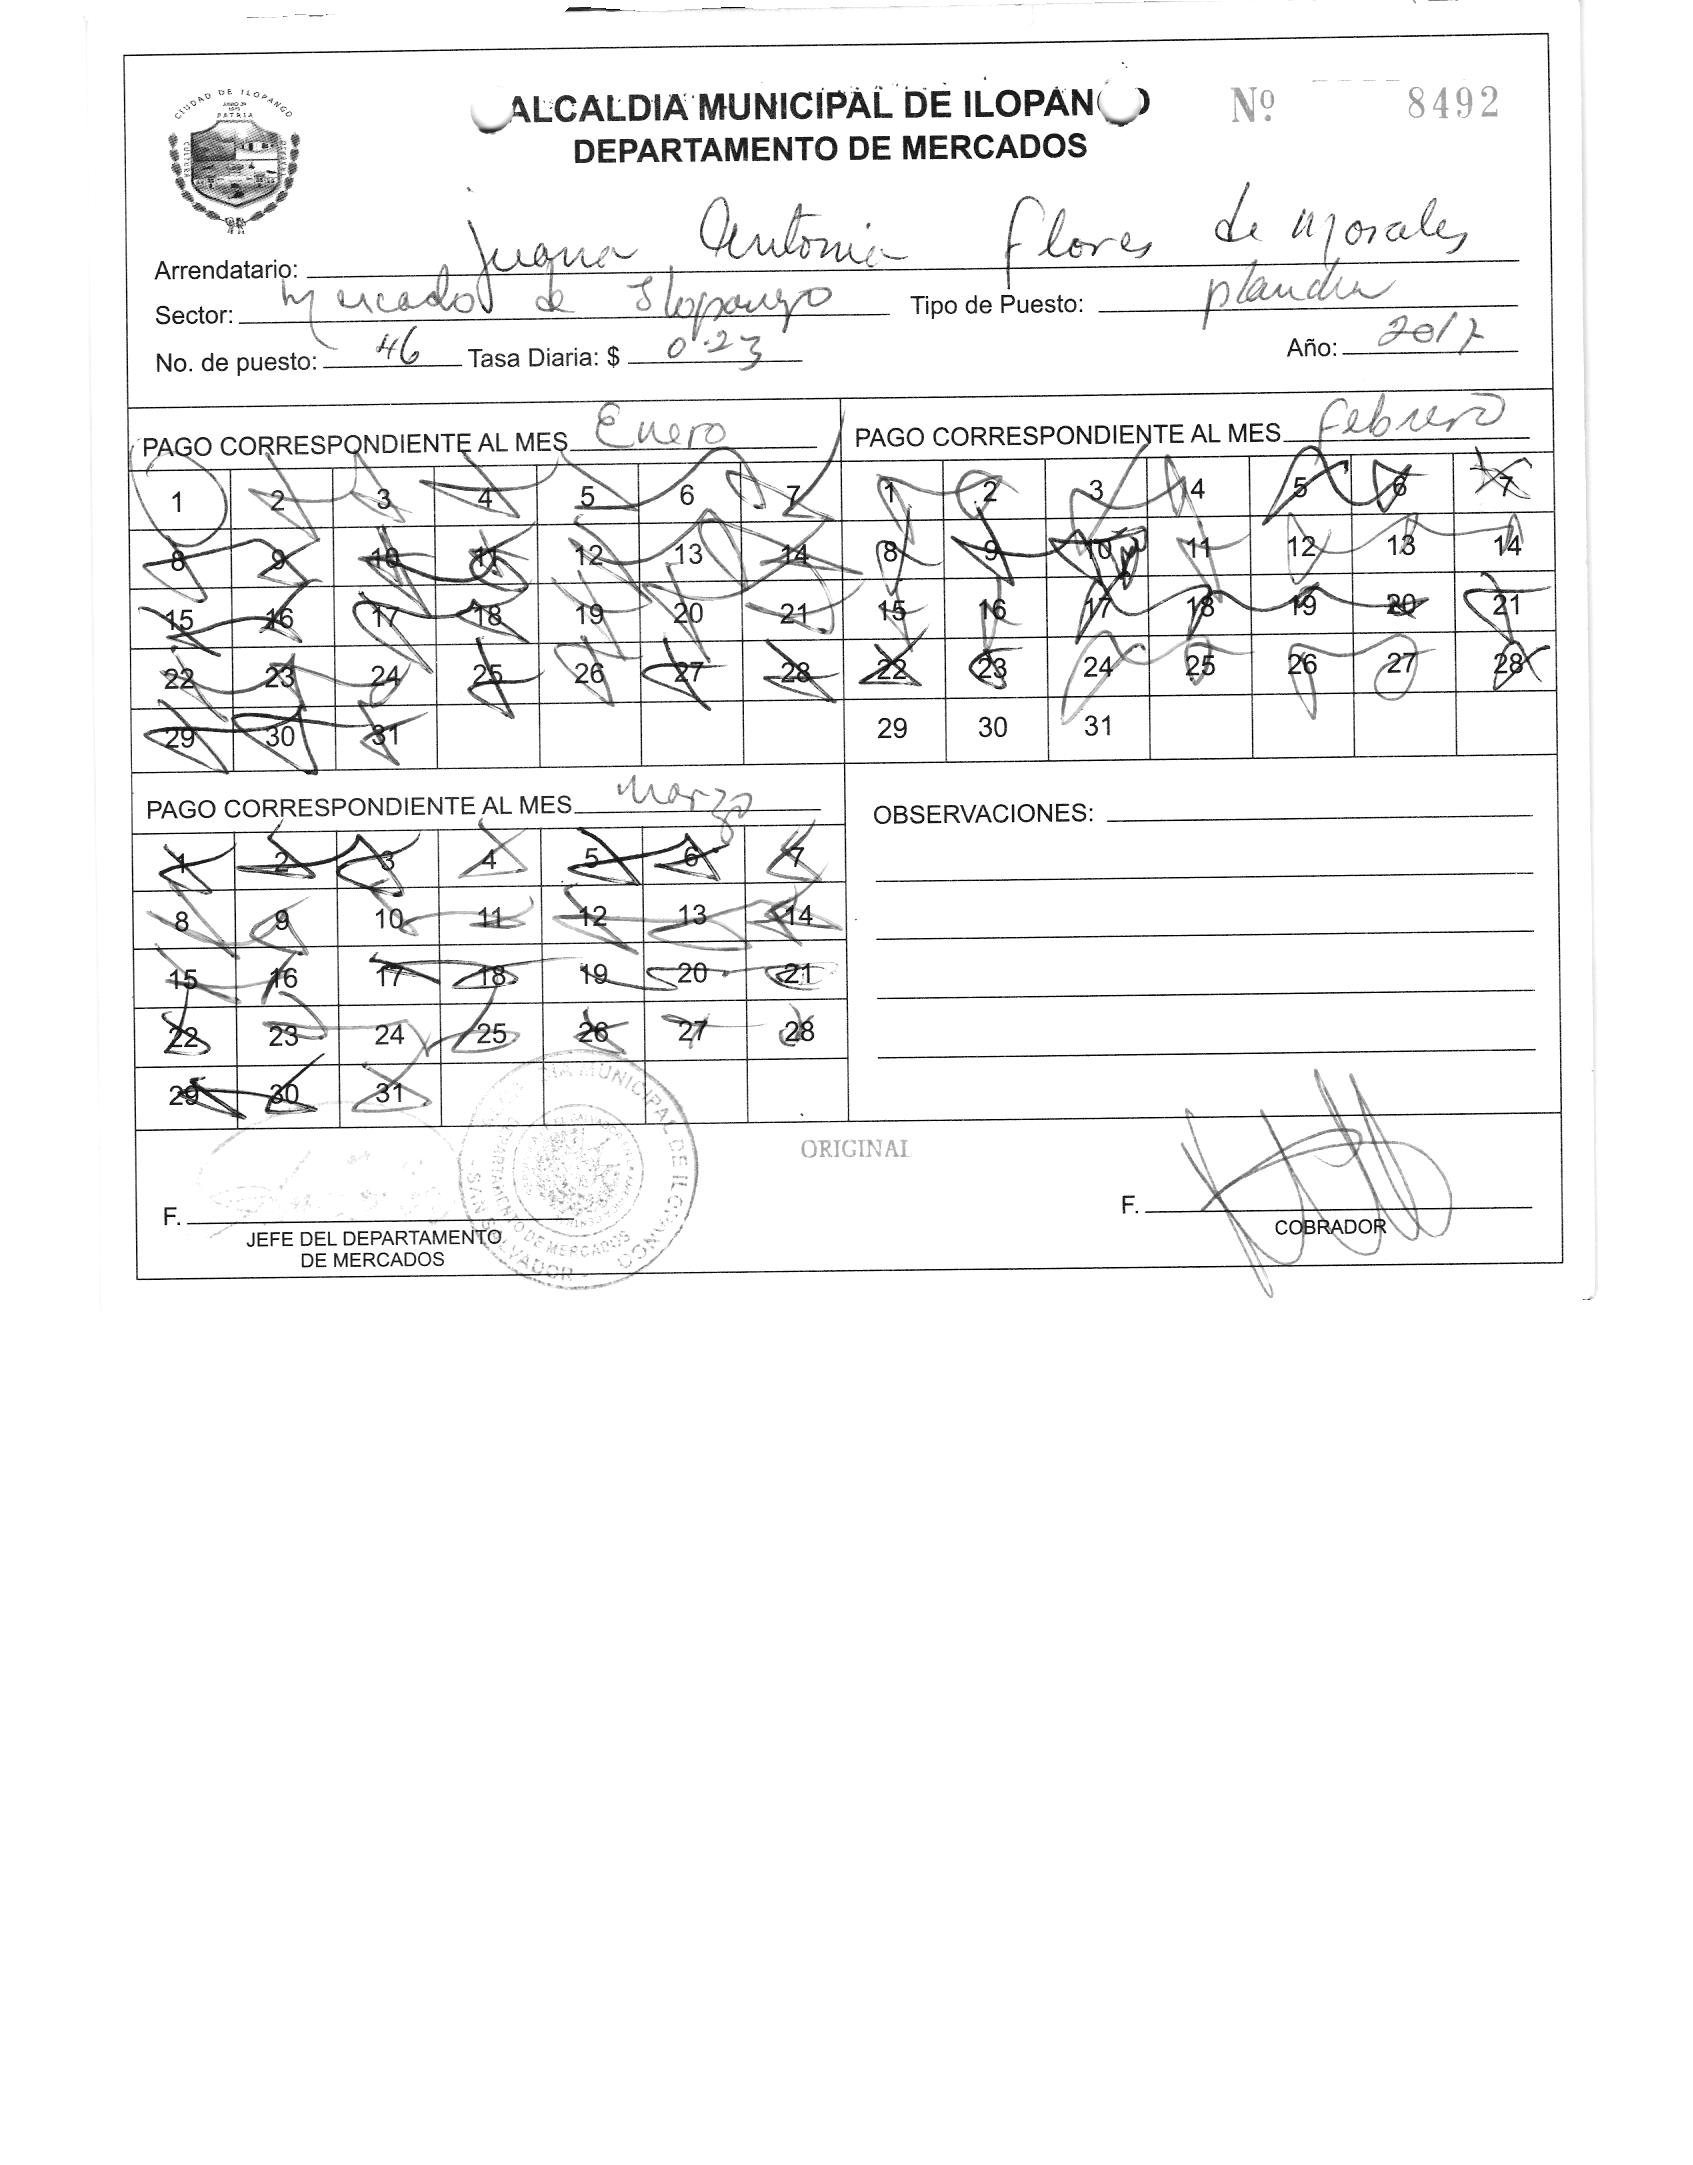 CIUDAD DE ILOPANGO
PATRIA
ALCALDIA MUNICIPAL DE ILOPAN
DEPARTAMENTO DE MERCADOS
Nº 8492
Arrendatario: Juana Antonia Flores de Morales
Sector: Mercado de Ilopango Tipo de Puesto:
No. de puesto: 46 Tasa Diaria: $ 0.23 Año: 2017
PAGO CORRESPONDIENTE AL MES Enero
1 2 3 4 5 6 7
8 9 10 11 12 13 14
15 16 17 18 19 20 21
22 23 24 25 26 27 28
29 30 31
PAGO CORRESPONDIENTE AL MES Febrero
1 2 3 4 5 6 7
8 9 10 11 12 13 14
15 16 17 18 19 20 21
22 23 24 25 26 27 28
29 30 31
PAGO CORRESPONDIENTE AL MES Marzo
1 2 3 4 5 6 7
8 9 10 11 12 13 14
15 16 17 18 19 20 21
22 23 24 25 26 27 28
29 30 31
OBSERVACIONES:
MUNICIPAL DE ILOPANGO
DEPARTAMENTO DE MERCADOS
SAN SALVADOR
ORIGINAL
F.
JEFE DEL DEPARTAMENTO
DE MERCADOS
F.
COBRADOR